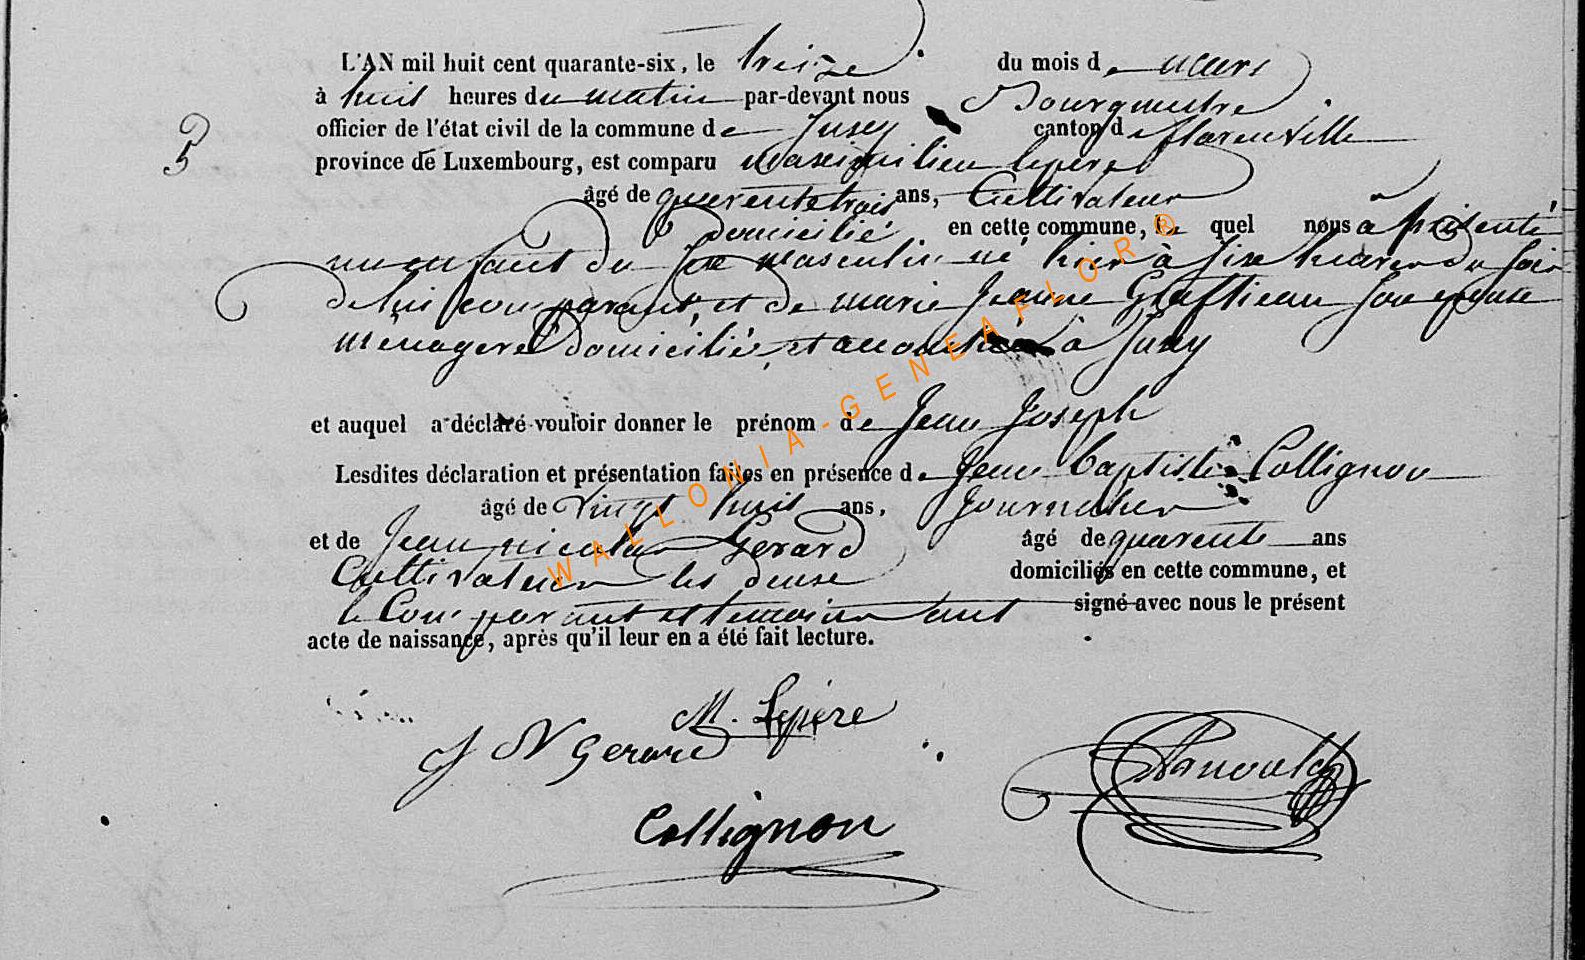 L'AN mil huit cent quarante-six, le treize du mois de mars
à huit heures du matin par-devant nous Bourgmestre
officier de l'état civil de la commune de Jusey canton de florenville
province de Luxembourg, est comparu maximilien lepere
âgé de quarente trois ans, Cultivateur
domicilié en cette commune, le quel nous a présenté
5
un enfant du sexe masculin né hier à six heures du soir
de lui comparant, et de marie Jeanne son epouse
ménagere domicilié, et accouchée à Jusey
et auquel a déclaré vouloir donner le prénom de Jean Joseph
Lesdites déclaration et présentation faites en présence de Jean baptiste Collignon
âgé de vingt huit ans, Journalier
et de Jean nicolas Gerard âgé de quarente ans
Cultivateur les deuse domiciliés en cette commune, et
le Comparant et temoins ont signé avec nous le présent
acte de naissance, après qu'il leur en a été fait lecture.
M. Lepère
J N Gerard
Arnould
Collignon
WALLONIA-GENEAFLOR®